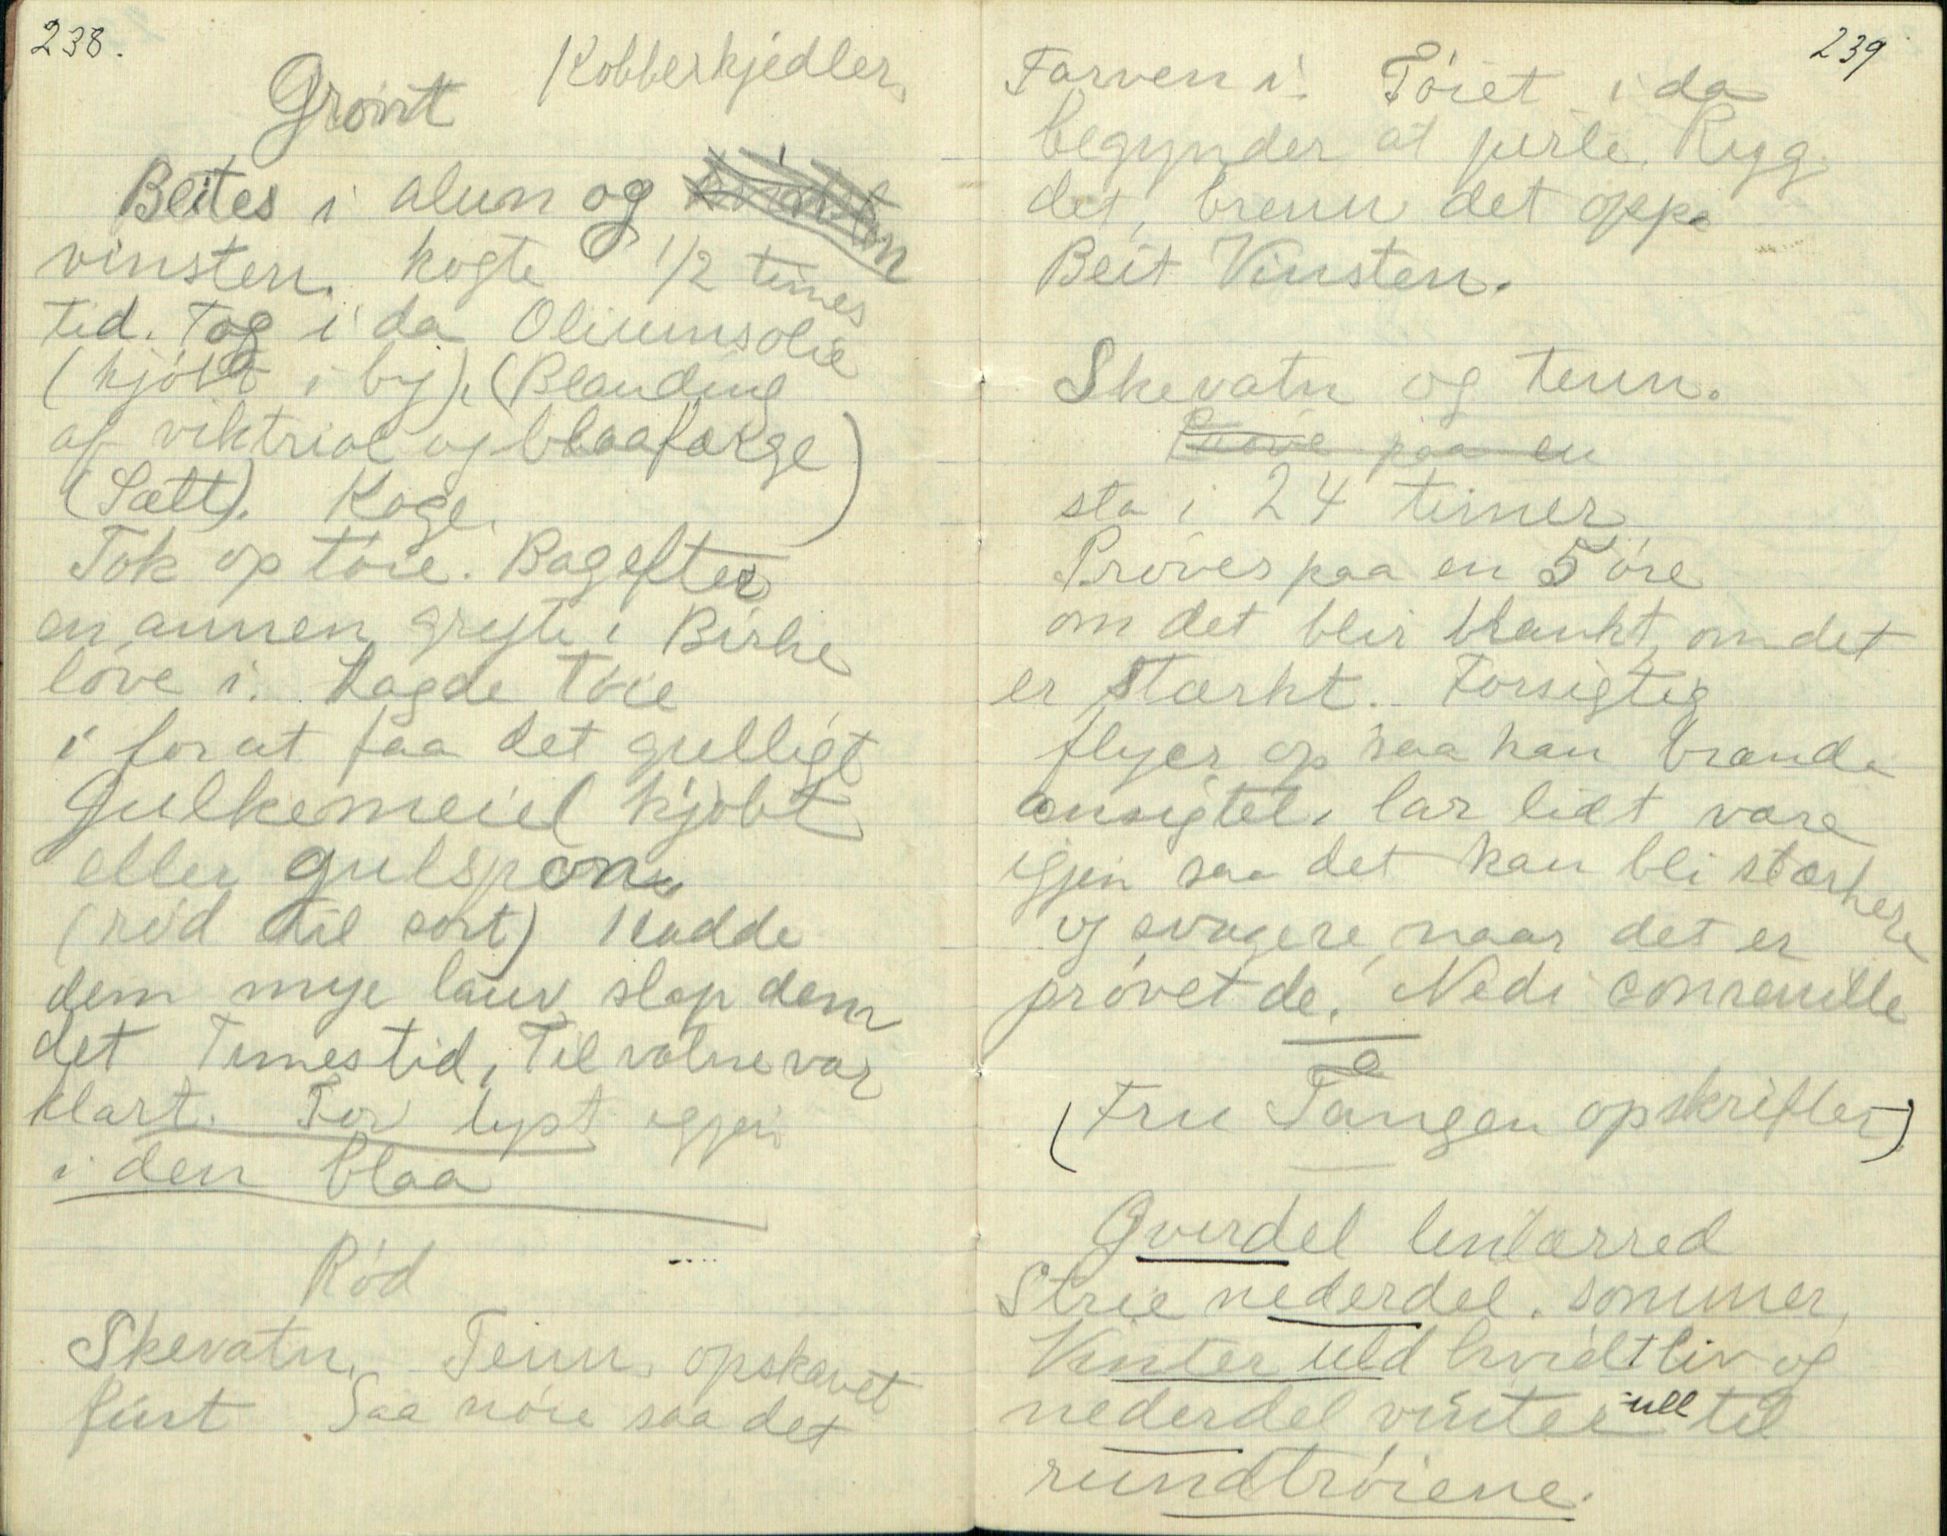 238.
Kobberkjedler.
Grønt
Beites i alun og
vinsten. kogte 1/2 times
tid. Tog i da Oliumsolie
(kjøbt i by). (Blanding
af viktriol og blaafarge)
(Sætt). Koge.
Tok op tøie. Bagefter
en annen gryte i Birke
løve i. Lagde Tøie
i for at faa det gulligt
Gulkemeiel kjøbt
eller gulspon.
(rød til sort) Hadde
dem mye lauv slap dem
det Timestid, Til vatne var
klart. For lyst igjen
i den blaa
Rød
Skevatn. Tenn. opskavet
fint Saa nøie saa det
239
Farven i. Tøiet i da
begynder at perle. Ryg
det, brenn det opp.
Beit Vinsten.
Skevatn og tenn.
Prøve paa en
sta i 24 timer
Prøves paa en 5 øre
om det blir blankt, om det
er stærkt. Forsigtig
flyer op saa kan brande
ansigtet. lar lidt være
igjen saa det kan bli stærkere
og svagere, naar det er
prøvet de. Nedi conrenille
(Fru Tangen opskrifter)
Qverdel lenlærred
Strie nederdel. sommer,
Vinter uld hvidt liv og
nederdel vinter ull til
rundtrøiene.